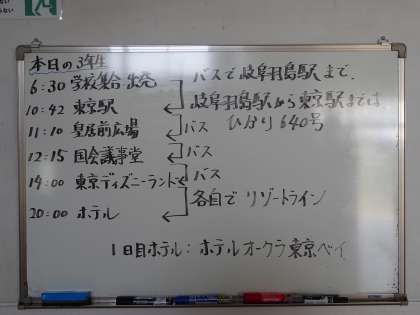 本日の3年生
6:30 学校集合・出発
バスで岐阜羽島駅まで.
10:42 東京駅
岐阜羽島駅から東京駅までは
ひかり640号
11:10 皇居前広場
バス
12:15 国会議事堂
バス
14:00 東京ディズニーランド
バス
20:00 ホテル
各自でリゾートライン
1日目ホテル:ホテルオークラ東京ベイ